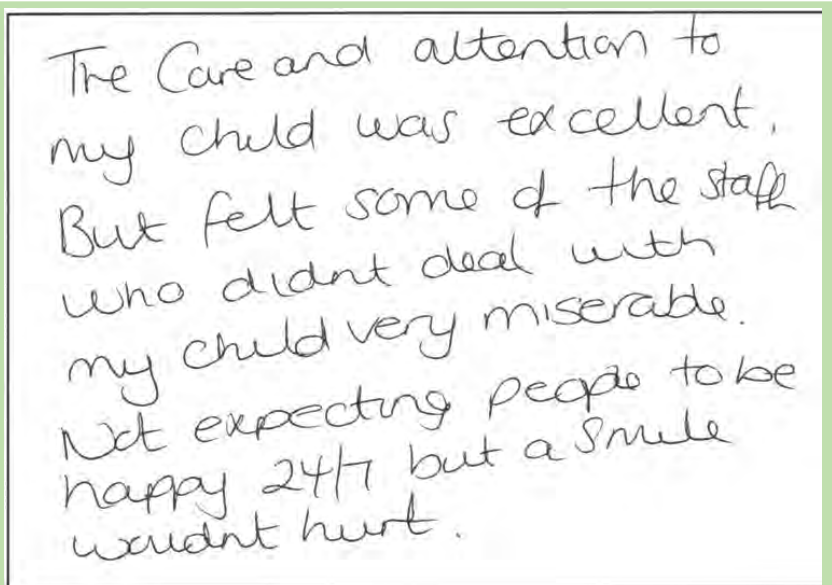 The Care and attention to
my child was excellent.
But felt some of the staff
who didnt deal with
my child very miserable.
Not expecting people to be
happy 24/7 but a Smile
wouldnt hurt.